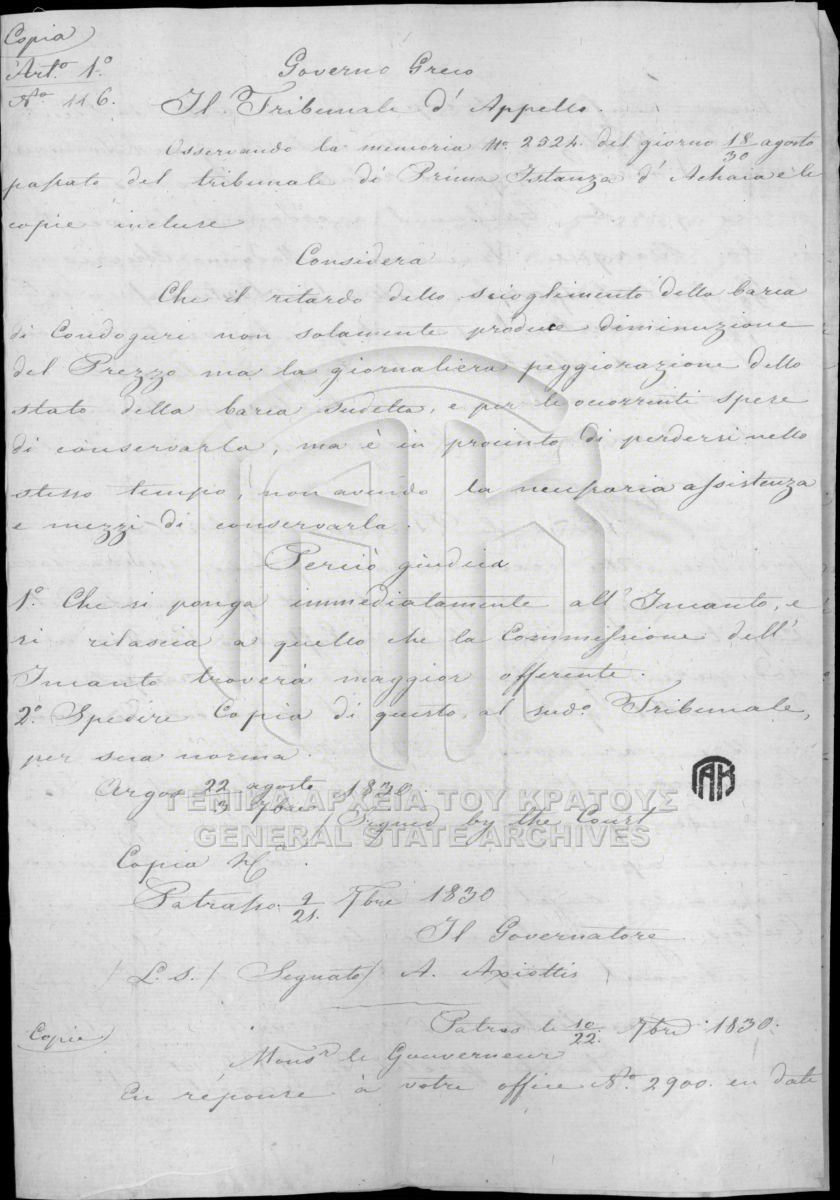 Copia
Art.º 1º
Nº 116.
Governo Greco
Il Tribunale d'Appello.
Osservando la memoria Nº 2524. del giorno 18/30 agosto
passato del tribunale di Prima Istanza d'Achaia e le
copie incluse
Considera
Che il ritardo dello scioglimento della barca
di Condoguri non solamente produce diminuzione
del Prezzo ma la giornaliera peggiorazione dello
stato della barca sudetta, e per le occorrenti spese
di conservarla, ma è in procinto di perdersi nello
stesso tempo, non avendo la necessaria assistenza
e mezzi di conservarla.
Perciò giudica
1º. Che si ponga immediatamente all'Incanto, e
si rilascia a quello che la Commissione dell'
Incanto troverà maggior offerente.
2º. Spedire Copia di questo, al sudº. Tribunale,
per sua norma.
Argos 22 agosto/3 7bre 1830.
/Signed by the Court
ΓΕΝΙΚΑ ΑΡΧΕΙΑ ΤΟΥ ΚΡΑΤΟΥΣ
GENERAL STATE ARCHIVES
ΓΑΚ
Copia
Patrasso 9/21. 7bre 1830
Il Governatore
/L.S./ Segnato/ A. Axiottis
Copie
Patras le 10/22. 7bre 1830.
Monsr le Gouverneur
En réponse à votre office Nº 2900. en date